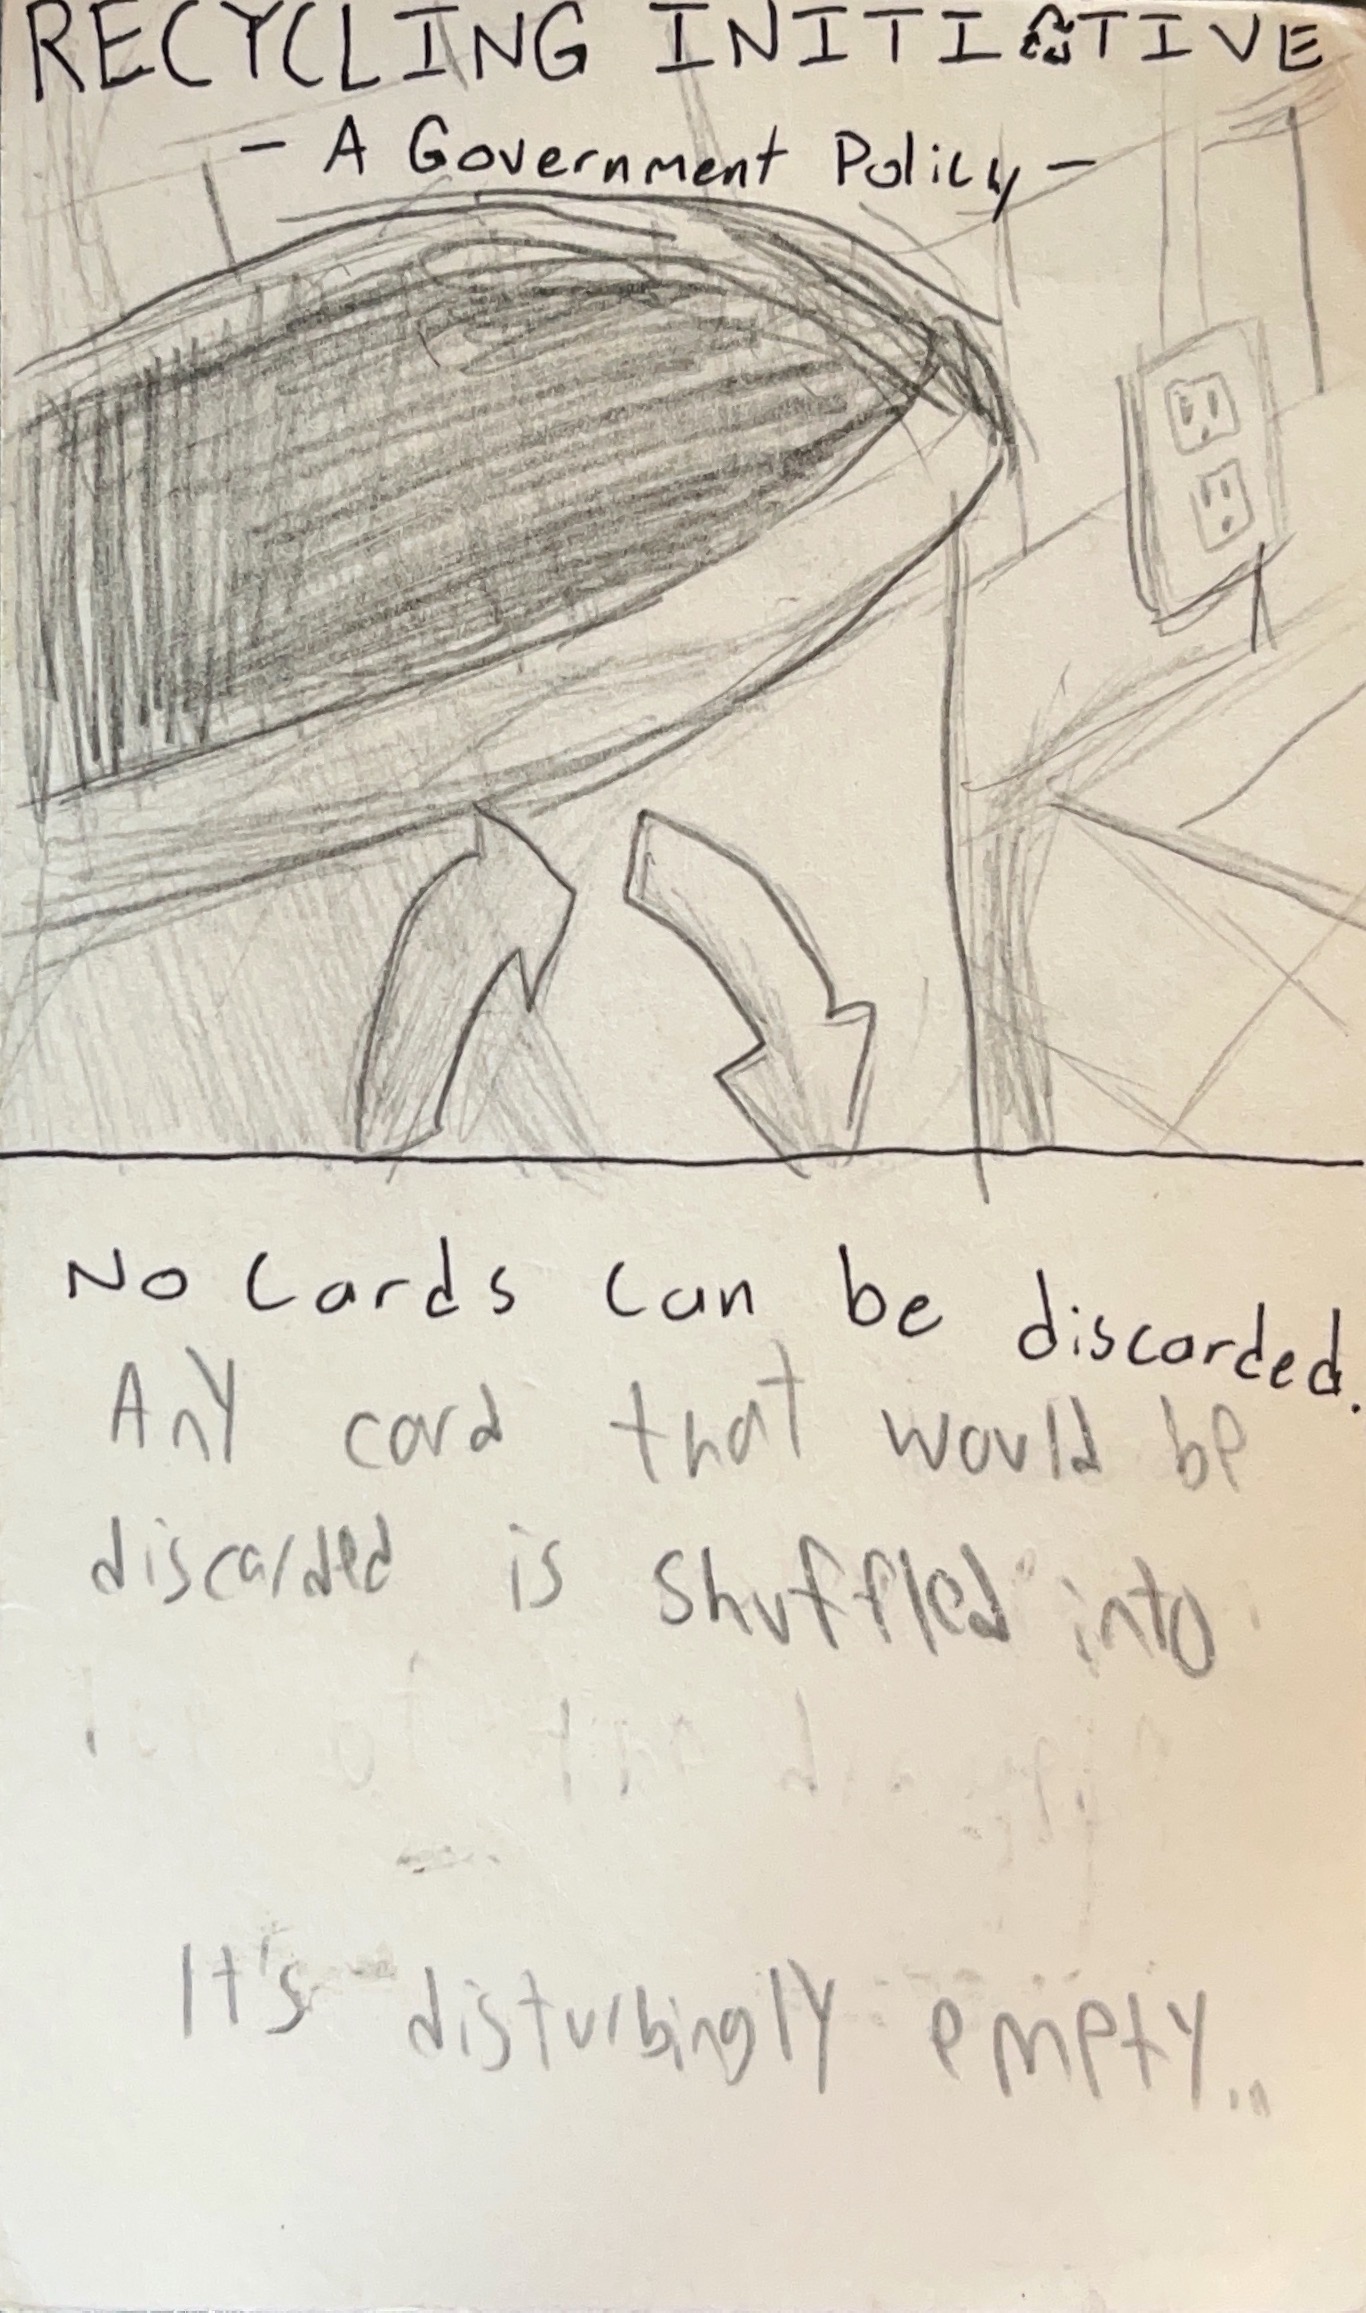 RECYCLING INITIATIVE
- A Government Policy -
No Cards can be discarded.
Any card that would be
discarded is shuffled into
It's disturbingly empty...